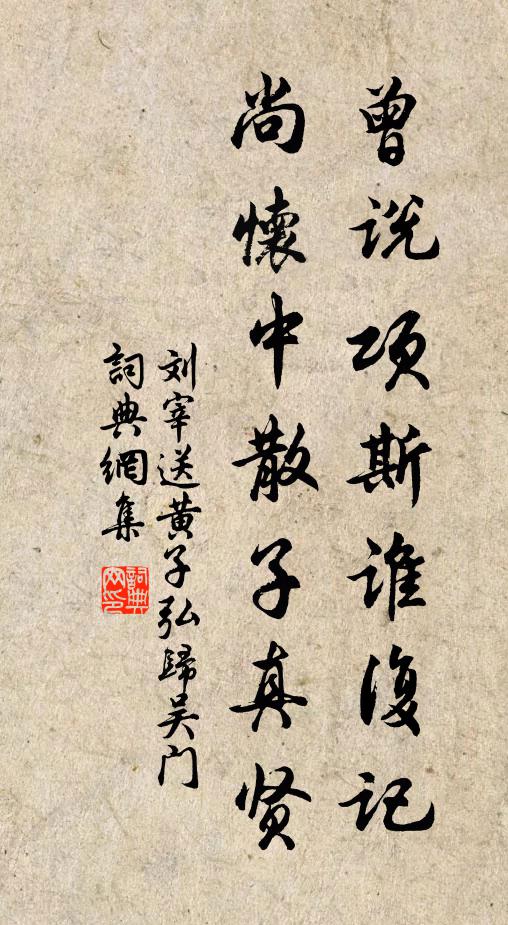 曾说项斯谁復记
尚懷中散子真贤
刘宰送黄子弘歸吴门
詞典網集
詞典
网印